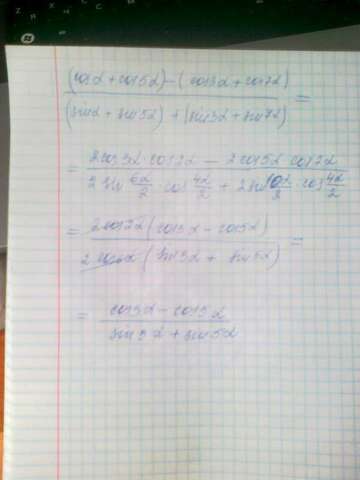 (cosα + cos5α) - (cos3α + cos7α)
(sinα + sin5α) + (sin3α + sin7α) =
= 2cos3α · cos2α - 2cos5α cos2α
2 sin 6α/2 · cos 4α/2 + 2 sin 10α/2 · cos 4α/2
= 2cos2α (cos3α - cos5α)
2 cos2α (sin3α + sin5α) =
= cos3α - cos5α
sin3α + sin5α